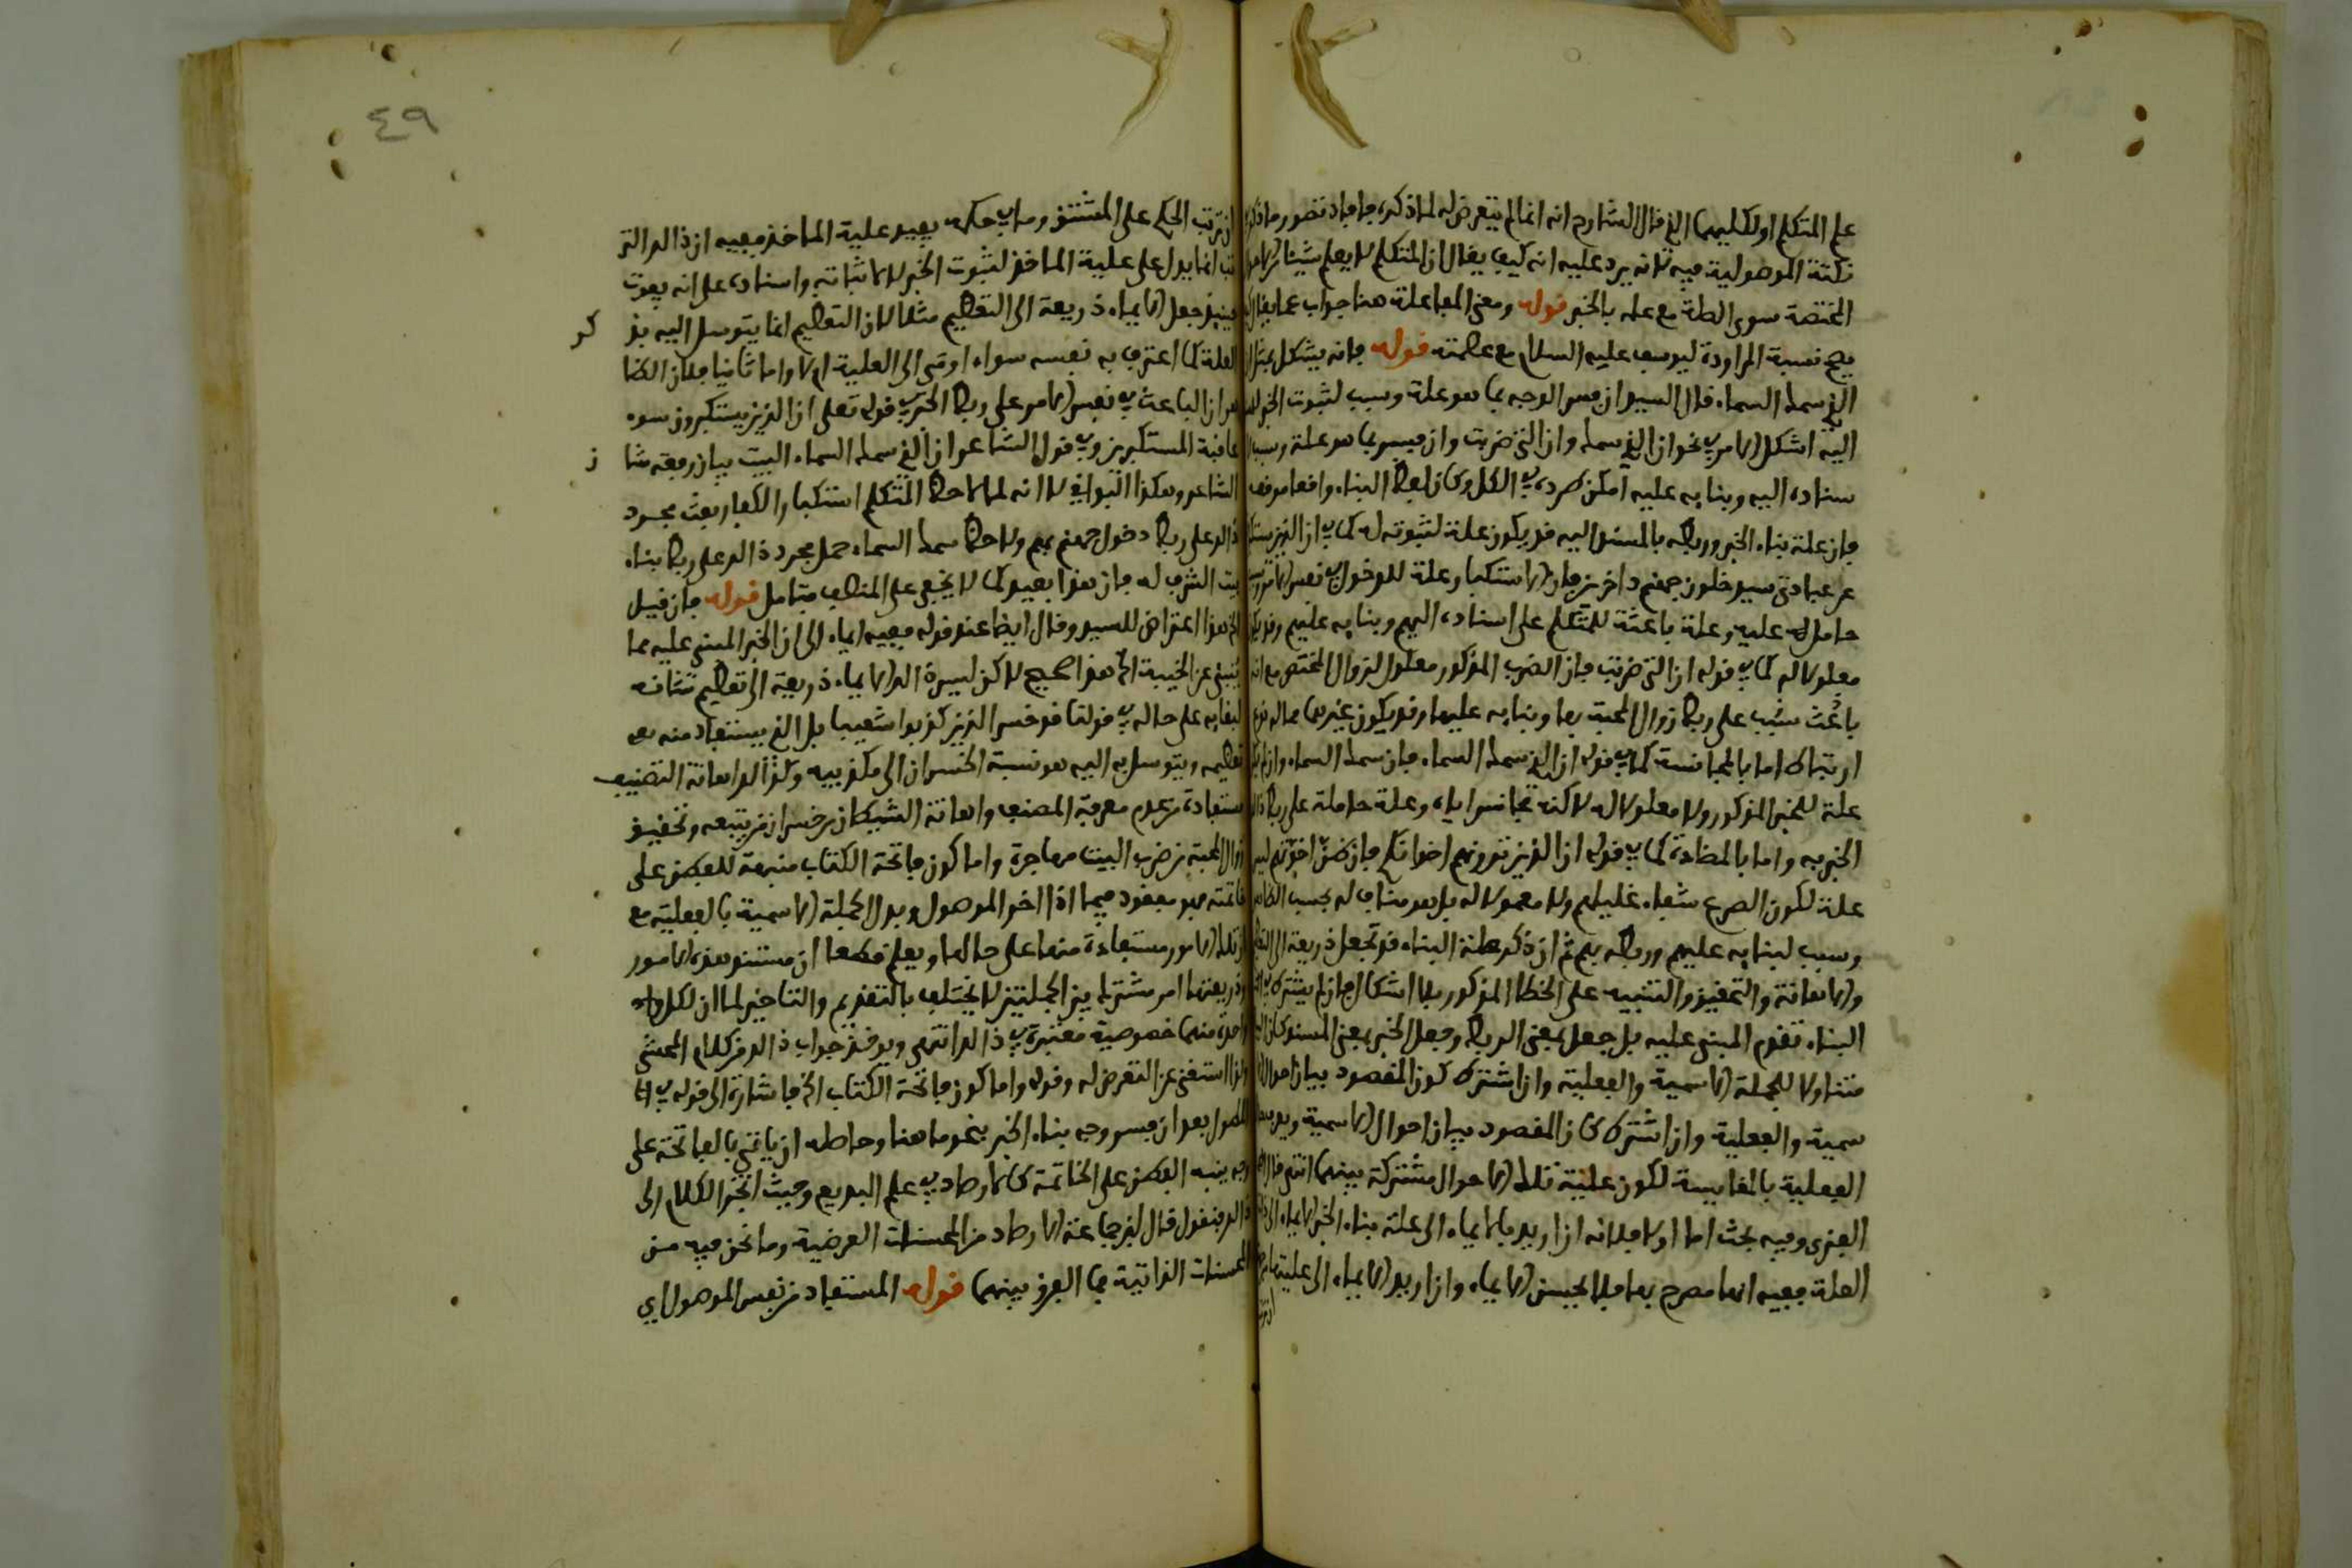 على المتكلم او لكليهما الخ قال الشارح انه انما لم يتعرض له لما ذكره فافاد تصور ما ذكره
نكتة الموصولية فيه لانه يرد عليه انه كيف يقال ان المتكلم لا يعلم شيئا من الامور
المختصة سوى الصلة مع علمه بالخبر قوله ومعنى المفاعلة هنا جواب عما يقال
يصح نسبة المراودة ليوسف عليه السلام مع عصمته قوله فانه يشكل بمثل ان
الذي سمك السماء قال السيد ان فسر الوجه بما هو علة وسبب لثبوت الخبر
اليه اشكل الامر في نحو ان الذي سمك وان التي ضربت وان فسر بما هو علة وسبب
سناده اليه وبنايه عليه امكن طرده في الكل وكان لفظ البناء واقعا موقعه
فان علة بناء الخبر وربطه بالمسند اليه قد يكون علة لثبوته له كما في ان الذين يستكبرون
عن عبادتي سيدخلون جهنم داخرين فان الاستكبار علة للدخول في نفس الامر
حامل له عليه وعلة باعثة للمتكلم على اسناده اليهم وبنايه عليهم وقد يكون
معلولا له كما في قوله ان التي ضربت فان الضرب المذكور معلول لزوال المحبة مع انه
باعث سبب على ربط زوال المحبة بها وبنايه عليها وقد يكون غيرهما مما له نوع
ارتباط اما بالمجانسة كما في قوله ان الذي سمك السماء فان سمك السماء وان لم يكن
علة للخبر المذكور ولا معلولا له لاكنه يجانس اياه وعلة حاملة على ربط ذلك
الخبر به واما بالمضادة كما في قوله ان الذين ترونهم اخوانكم فان ظن اخوتهم ليس
علة لكون الصرع شفاء غليلهم ولا معمولا له بل هو مناف له بحسب الظاهر
وسبب لبنايه عليهم وربطه بهم ثم ان ذكر علة البناء قد تجعل ذريعة الى التعظيم
والاهانة والتحقيق والتنبيه على الخطا المذكور بلا اشكال فان لم يشترك في
البناء تقدم المبنى عليه بل جعل بمعنى الربط وجعل الخبر بمعنى المسند كان
متناولا للجملة الاسمية والفعلية وان اشترك كون المقصود بيان احوال
سمية والفعلية وان اشترط كان المقصود بيان احوال الاسمية ويعرف
الفعلية بالمقايسة لكون علية تلك الاحوال مشتركة بينهما انتهى قال
الفنرى وفيه بحث اما اولا فلانه ان اريد بالايماء الى علة بناء الخبر الايماء الى ذات
العلة ففيه انها مصرح بها فلا يحسن الايماء وان اريد الايماء الى عليتها
ان ترتب الحكم على المشتق وما في حكمه يفيد علية الماخذ ففيه ان ذالك التر
تب انما يدل على علية الماخذ لثبوت الخبر لا لاثباته واسناده على انه يفوت
حينئذ جعل الايماء ذريعة الى التعظيم مثلا لان التعظيم انما يتوسل اليه بذكر
العلة كما اعترف به نفسه سواء اومى الى العلية ام لا واما ثانيا فلان الظا
هر ان الباعث في نفس الامر على ربط الخبر في قوله تعلى ان الذين يستكبرون سوء
عاقبة المستكبرين وفي قول الشاعر ان الذي سمك السماء البيت بيان رفعة شان
الشاعر وهكذا البواقي لا انه لما لاحظ المتكلم استكبار الكفار بعث مجرد
ذالك على ربط دخول جهنم بهم ولاحظ سمك السماء حمل مجرد ذالك على ربط بناء
بيت الشرف له فان هذا بعيد كما لا يخفى على المنصف فتامل قوله فان قيل
الخ هذا اعتراض للسيد وقال ايضا عند قوله ففيه ايماء الى ان الخبر المبنى عليه مما
ينبئ عن الخيبة الخ هذا صحيح لاكن ليس ذالك الايماء ذريعة الى تعظيم شانه
لبقايه على حاله في قولنا قد خسر الذين كذبوا شعيبا بل الذي يستفاد منه
تعظيمه ويتوسل به اليه هو نسبة الخسران الى مكذبيه وكذا الاهانة التصنيف
مستفادة من عدم معرفة المصنف واهانة الشيطان من خسران من يتبعه وتحقيق
زوال المحبة من ضرب البيت مهاجرة واما كون فاتحة الكتاب منبهة للفطن على
خاتمته فهو مفقود فيما اذا اخر الموصول وبدل الجملة الاسمية بالفعلية مع
ان تلك الامور مستفادة منها على حالها ويعلم قطعا ان مستند هذه الامور
وذريعتها امر مشترك بين الجملتين لا يختلف بالتقديم والتاخير لما ان لكل
واحدة منهما خصوصية معتبرة في ذالك انتهى ويوخذ جواب ذالك من كلام المحشى
ولذا استغنى عن التعرض له وقوله واما كون فاتحة الكتاب الخ فاشارة الى قوله في
المطول بعد ان فسر وجه بناء الخبر بنحو ما هنا وحاصله ان ياتي بالفاتحة على
وجه ينبه الفطن على الخاتمة كالارصاد في علم البديع وحيث انجر الكلام الى
ذالك فنقول قال لغير جماعة الارصاد من المحسنات العرضية وما نحن فيه من
المحسنات الذاتية فما الفرق بينهما قوله المستفاد من نفس الموصول اي
٤٩